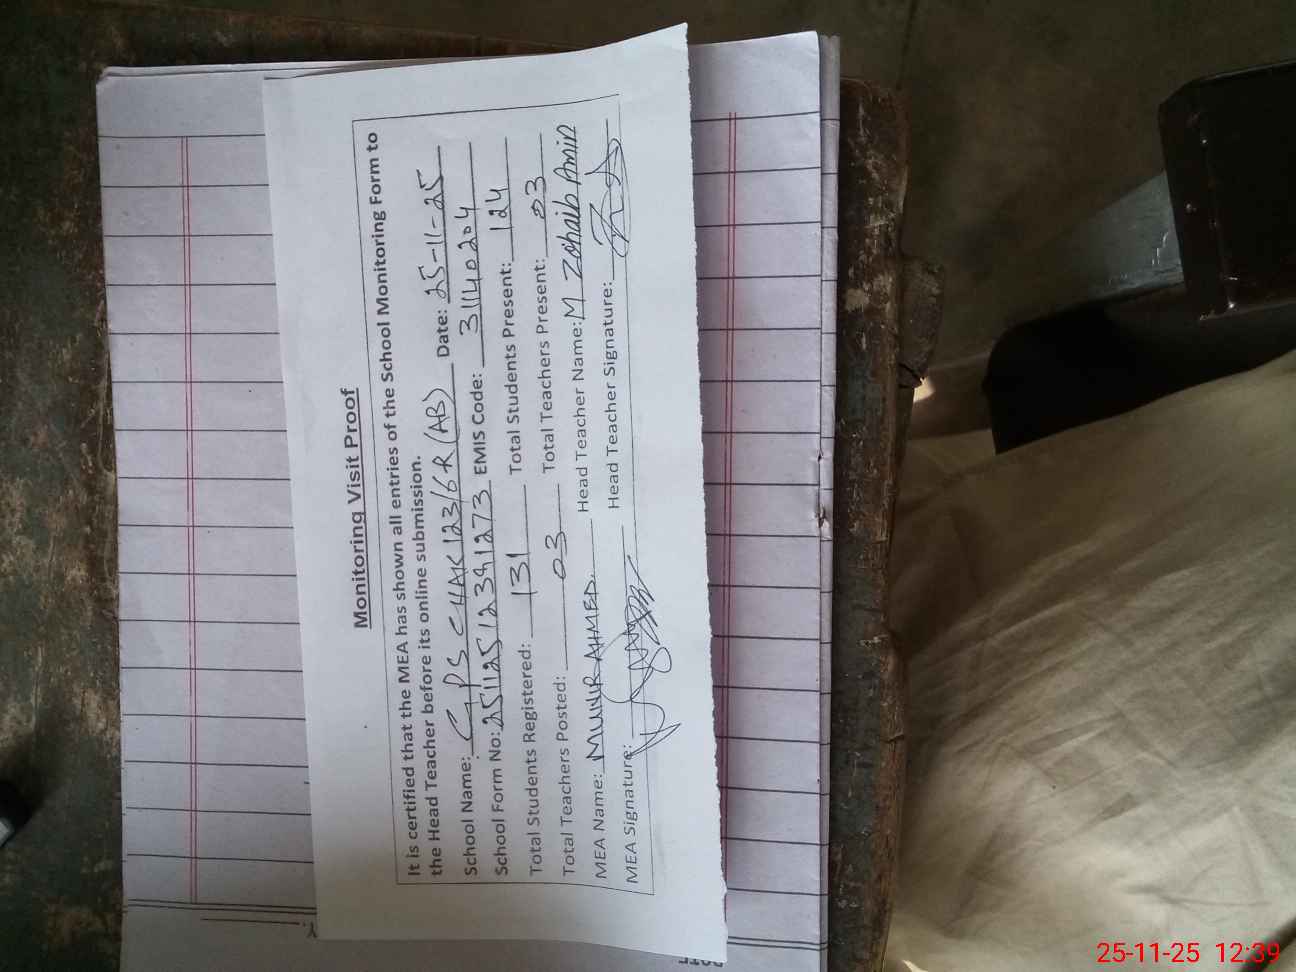 Monitoring Visit Proof
It is certified that the MEA has shown all entries of the School Monitoring Form to
the Head Teacher before its online submission.
School Name: GPS CHAK 123/6R (AB) Date: 25-11-25
School Form No: 251125123941273 EMIS Code: 31140204
Total Students Registered: 131 Total Students Present: 124
Total Teachers Posted: 03 Total Teachers Present: 03
MEA Name: MUNIR AHMED. Head Teacher Name: M Zohaib Amin
MEA Signature: Head Teacher Signature:
25-11-25 12:39